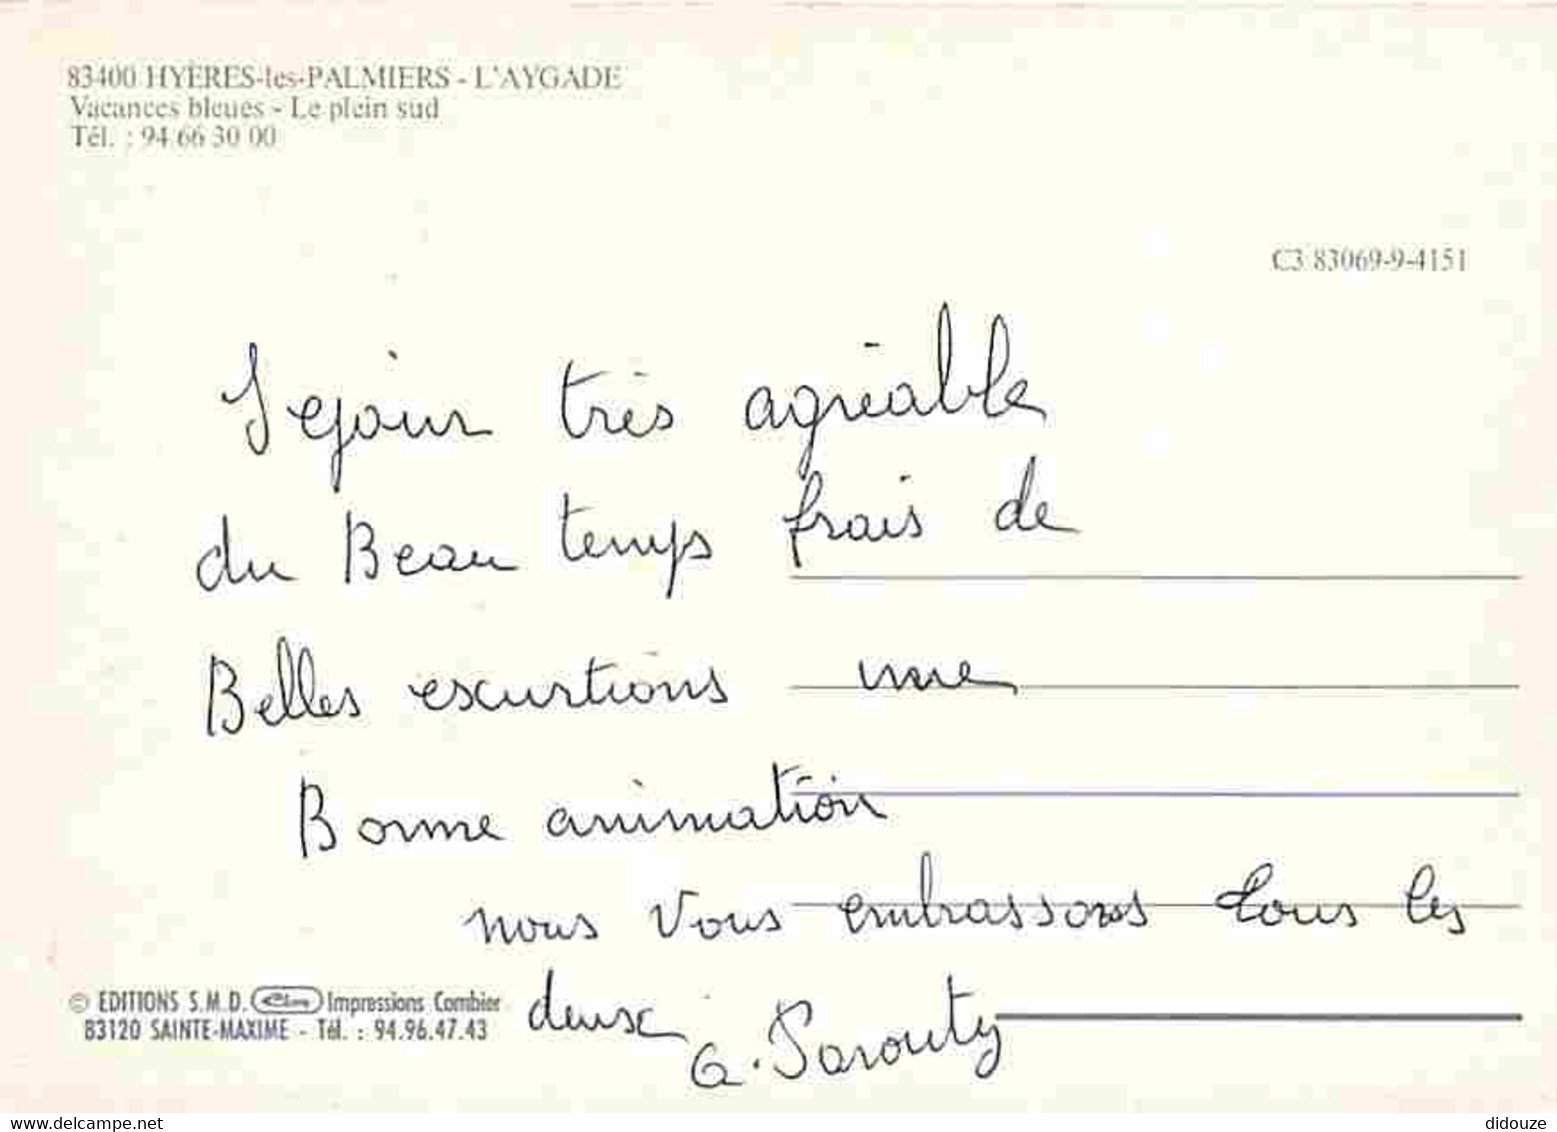 83400 HYÈRES-les-PALMIERS - L'AYGADE
Vacances bleues - Le plein sud
Tél. : 94 66 30 00
C3 83069-9-4151
Sejour très agréable
du Beau temps frais de
Belles escurtions une
Bonne animation
nous vous embrassons tous les
deux
G. Parouty
© EDITIONS S.M.D. Impressions Combier
83120 SAINTE-MAXIME - Tél. : 94.96.47.43
didouze
delcampe.net